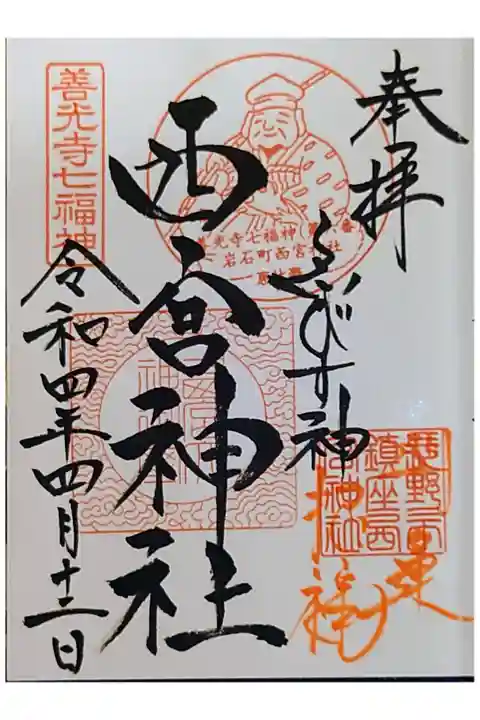 奉拝
ゑびす神
招福
西宮神社
令和四年四月十二日
善光寺七福神
岩石町西宮神社
長野市東
鎮座西
宮神社